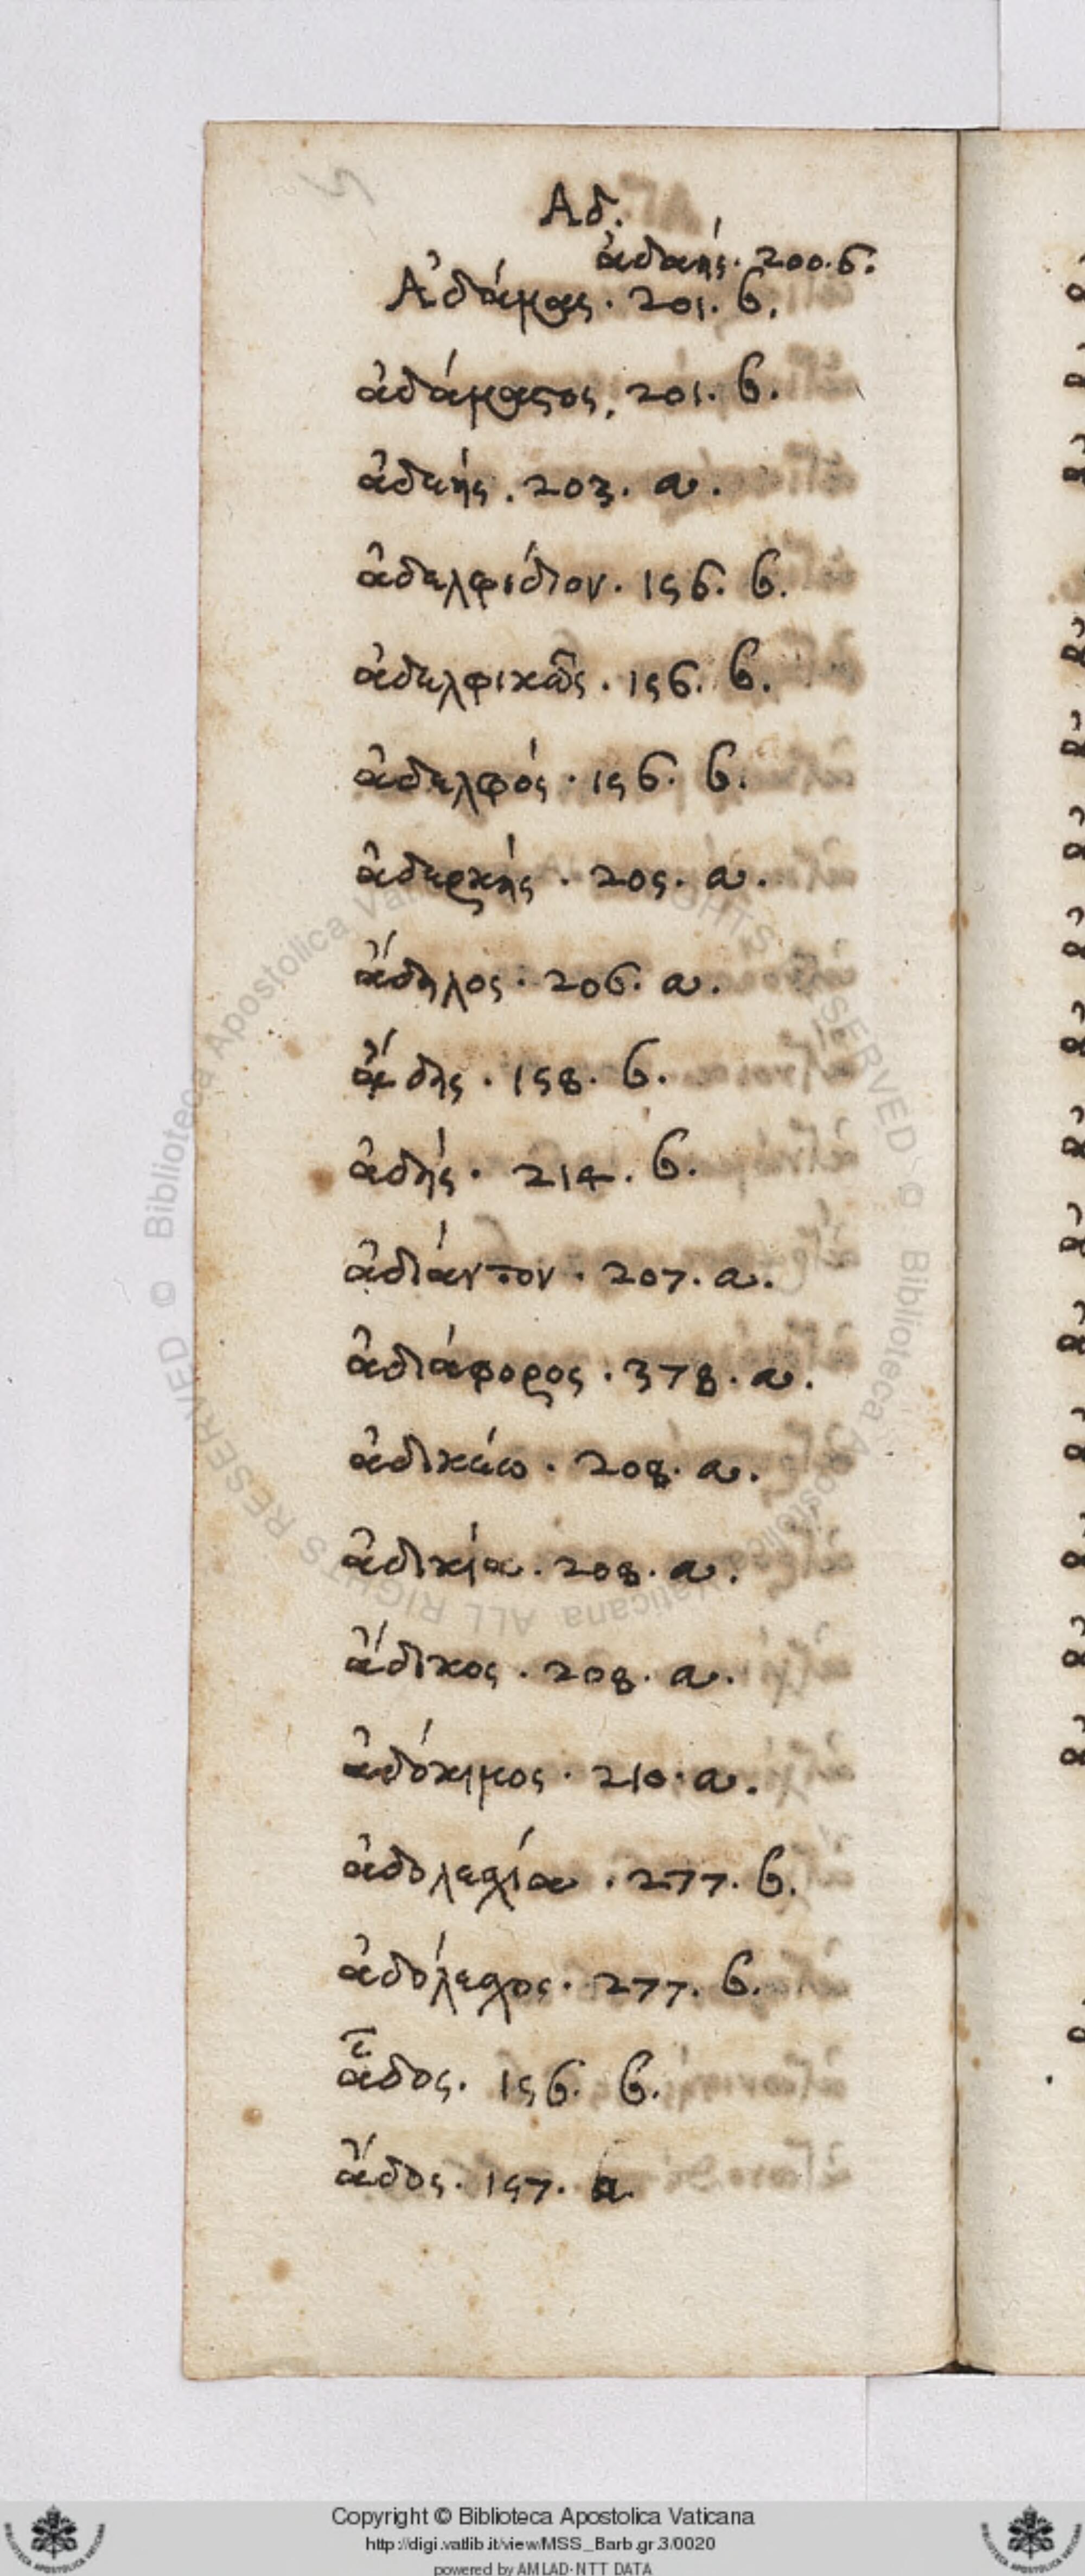 Αδ.
ἀδαής. 200. b.
Ἀδάμας. 201. b.
ἀδάμαστος, 201. b.
ἀδεής. 203. a.
ἀδελφιδίον. 156. b.
ἀδελφικῶς. 156. b.
ἀδελφός. 156. b.
ἀδερκής. 205. a.
ἄδηλος. 206. a.
ᾅδης. 158. b.
ἀδής. 214. b.
ἀδίαντον. 207. a.
ἀδιάφορος. 378. a.
ἀδικέω. 208. a.
ἀδικία. 208. a.
ἄδικος. 208. a.
ἀδόκιμος. 210. a.
ἀδολεσχία. 277. b.
ἀδόλεσχος. 277. b.
ἆδος. 156. b.
ἄδος. 157. a.
© Biblioteca Apostolica Vaticana ALL RIGHTS RESERVED
Copyright © Biblioteca Apostolica Vaticana
http://digi.vatlib.it/view/MSS_Barb.gr.3/0020
powered by AMLAD-NTT DATA